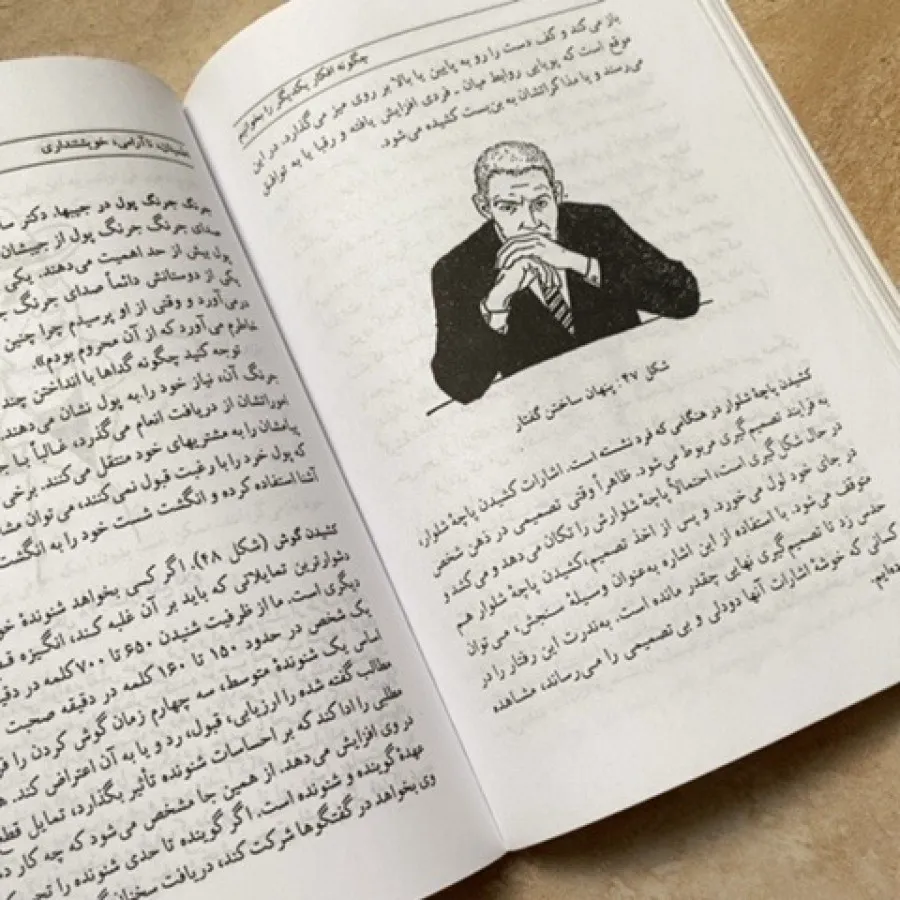 چگونه افکار یکدیگر را بخوانیم
باز می‌کند و کف دست را رو به پایین یا بالا بر روی میز می‌گذارد. در این
موقع است که پویایی روابط میان ـ فردی افزایش یافته و رقبا یا به توافق
می‌رسند و یا مذاکراتشان به بن‌بست کشیده می‌شود.
شکل ۴۷: پنهان ساختن گفتار
کشیدن پاچهٔ شلوار در هنگامی که فرد نشسته است. اشارات کشیدن پاچهٔ شلوار،
به فرایند تصمیم‌گیری مربوط می‌شود. ظاهراً وقتی تصمیمی در ذهن شخص
در حال شکل‌گیری است، احتمالاً پاچهٔ شلوارش را تکان می‌دهد و می‌کند و
در جای خود لول می‌خورد. و پس از اخذ تصمیم، کشیدن پاچهٔ شلوار هم
متوقف می‌شود. با استفاده از این اشاره به‌عنوان وسیلهٔ سنجش، می‌توان
حدس زد تا تصمیم‌گیری نهایی چقدر مانده است. به‌ندرت این رفتار را در
کسانی که خوشهٔ اشارات آنها دودلی و بی تصمیمی را می‌رساند، مشاهده
ده‌ایم.
ناآرامی، خویشتنداری
جرنگ جرنگ پول در جیبها. دکتر
صدای جرنگ جرنگ پول از جیبشان
پول بیش از حد اهمیت می‌دهند. یکی
یکی از دوستانش دائماً صدای جرنگ
درمی‌آورد و وقتی از او پرسیدم چرا چنین
خاطرم می‌آورد که از آن محروم بودم».
توجه کنید چگونه گداها با انداختن چند
جرنگ آن، نیاز خود را به پول نشان می‌دهند.
امورانشان از دریافت انعام می‌گذرد، غالباً با
پیامشان را به مشتریهای خود منتقل می‌کنند. برخی
که پول خرد را با رغبت قبول نمی‌کنند، می‌توان
آشنا استفاده کرده و انگشت شست خود را به انگشت
کشیدن گوش (شکل ۴۸). اگر کسی بخواهد شنوندهٔ
دشوارترین تمایلاتی که باید بر آن غلبه کند، انگیزه
دیگری است. ما از ظرفیت شنیدن ۶۵۰ تا ۷۰۰ کلمه در
یک شخص در حدود ۱۵۰ تا ۱۶۰ کلمه در دقیقه صحبت
اساس یک شنوندهٔ متوسط، سه چهارم زمان گوش کردن را
مطالب گفته شده را ارزیابی، قبول، رد و یا به آن اعتراض کند.
مطلبی را ادا کند که بر احساسات شنونده تأثیر بگذارد، تمایل
در وی افزایش می‌دهد. از همین جا مشخص می‌شود که چه کار
عهدهٔ گوینده و شنونده است. اگر گوینده تا حدی شنونده را
وی بخواهد در گفتگوها شرکت کند، دریافت